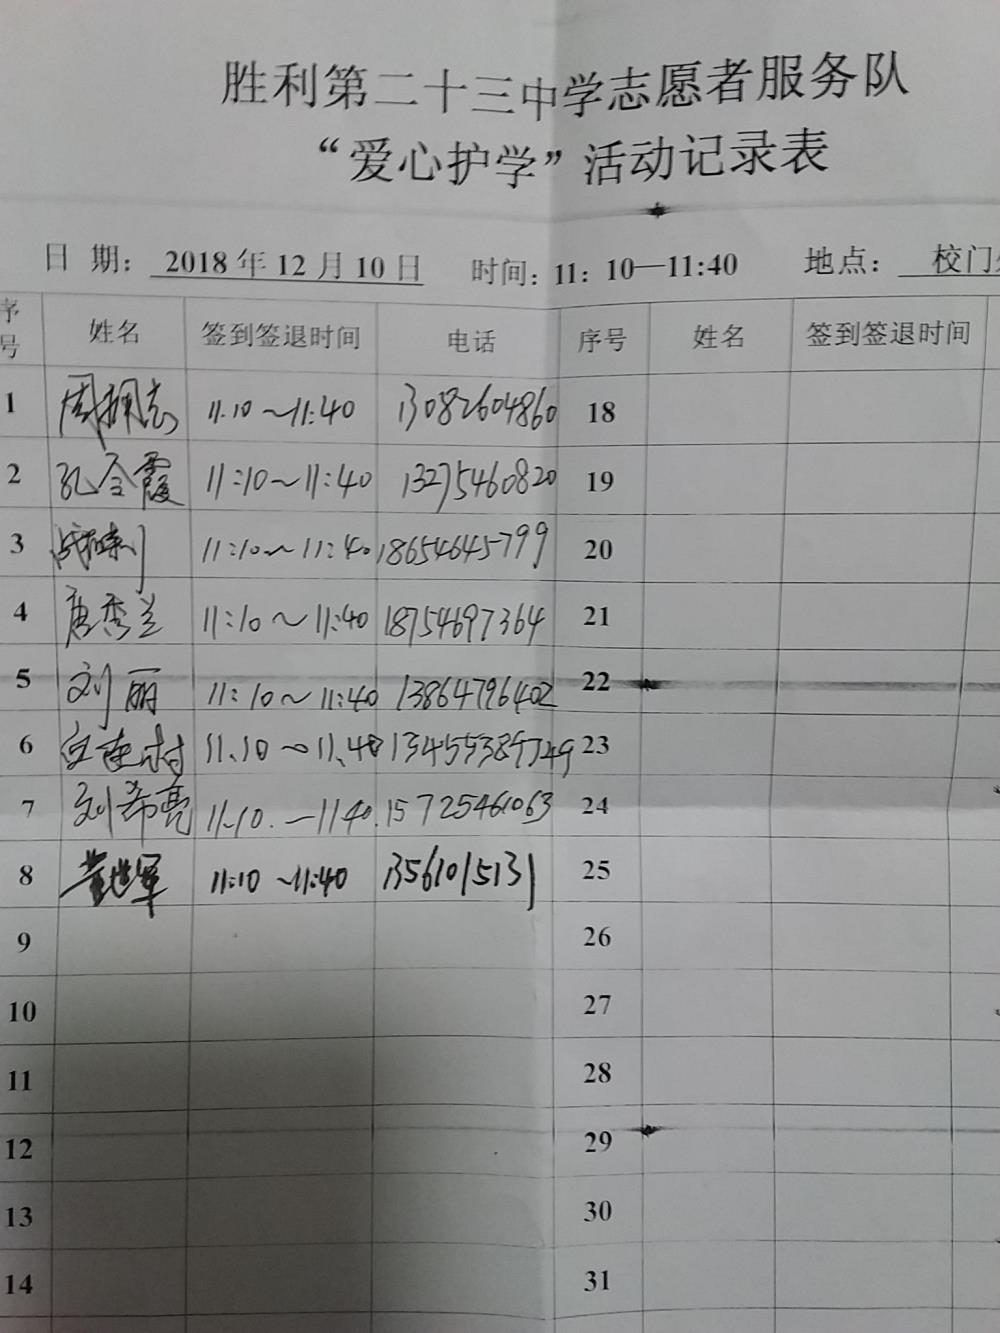 胜利第二十三中学志愿者服务队
“爱心护学”活动记录表
日 期： 2018 年 12 月 10 日 时间：11：10—11:40 地点： 校门
序号 姓名 签到签退时间 电话 序号 姓名 签到签退时间
1 周 志 11.10～11:40 13082604860 18
2 孔令霞 11:10～11:40 13275460820 19
3 11:10～11:40 18654645799 20
4 唐秀兰 11:10～11:40 18754697364 21
5 刘丽 11:10～11:40 13864796402 22
6 11.10～11.40 23
7 刘希亮 11.10.—1140. 15725461063 24
8 董世军 11:10～11:40 13561015131 25
9 26
10 27
11 28
12 29
13 30
14 31